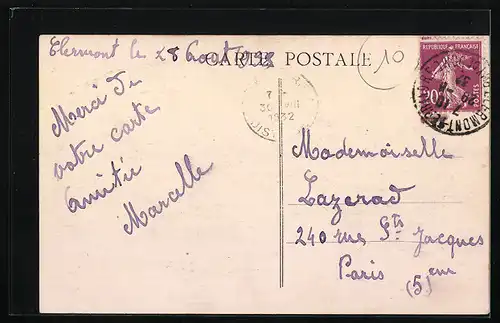 Clermont le 28 Aout 1932
CARTE POSTALE
10
REPUBLIQUE FRANÇAISE
20
POSTES
CLERMONT
7
30
1932
Merci de
votre carte
Amitié
Marcelle
Mademoiselle
Lazerad
240 rue St Jacques
Paris
(5 eme